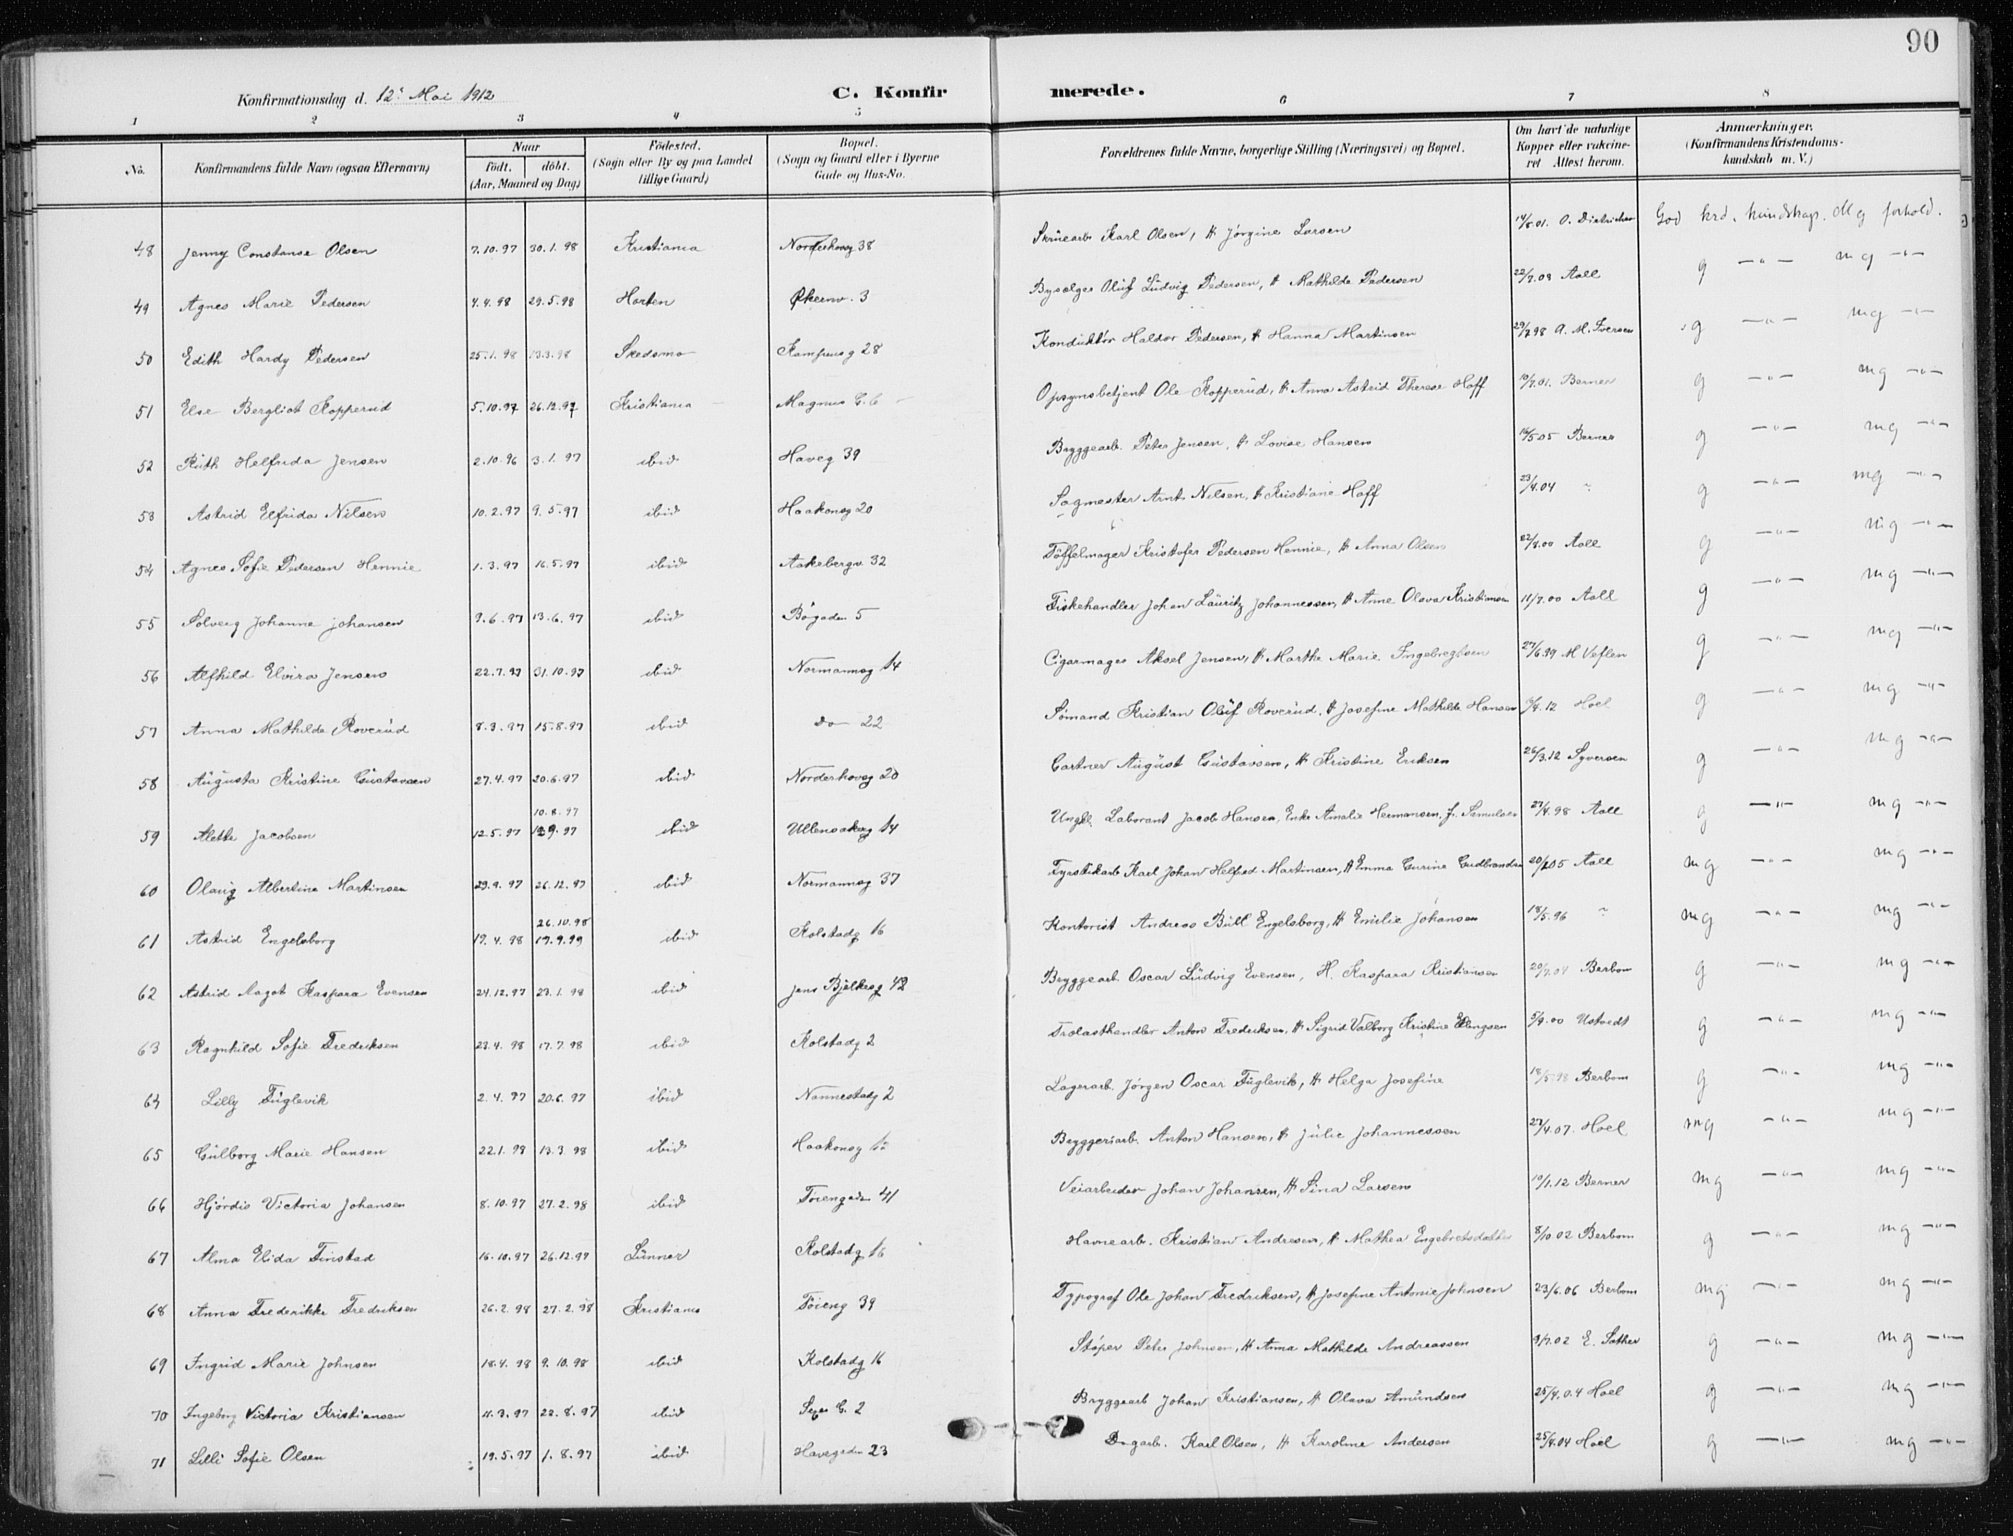 90
Konfirmationsdag d. 12' Mai 1912
C. Konfirmerede.
1 2 3 4 5 6 7 8
No. Konfirmandens fulde Navn (ogsaa Efternavn) Naar født. døbt. (Aar, Maaned og Dag) Födested. (Sogn eller By og paa Landet tillige Gaard) Bopæl. (Sogn og Gaard eller i Byerne Gade og Hus-No. Forældrenes fulde Navne, borgerlige Stilling (Næringsvei) og Bopæl. Om havt de naturlige Kopper eller vaccineret Attest herom. Anmærkninger. (Konfirmandens Kristendomskundskab m. V.)
48 Jenny Constanse Olsen 7.10.97 30.1.98 Kristiania Norderhovg 38 Skruearb Karl Olsen, H Jørgine Larsen 14/8.01. O. God krd. kundskap. Mg forhold.
49 Agnes Marie Pedersen 4.4.98 29.5.98 Horten Økernv. 3 Bysælger Oluf Ludvig Pedersen, H Mathilde Pedersen 22/7.03 Aall g -"- mg -"-
50 Edith Hardy Pedersen 25.1.98 13.3.98 Skedsmo Kampensg 28 Konduktør Haldor Pedersen, H Hanna Martinsen A. M. Iversen g -"- mg -"-
51 Else Bergliot Kopperud 5.10.97 26.12.97 Kristiania Magnus G. 6 Opsynsbetjent Ole Kopperud, H Anna Astrid Therese Hoff 10/7.01. Berner g -"- mg -"-
52 Ruth Helfrida Jensen 2.10.96 3.1.97 ibid Haveg 39 Bryggearb. Peter Jensen, H Lovise Hansen 16/5 05 Berner g -"- mg -"-
53 Astrid Elfrida Nilsen 10.2.97 9.5.97 ibid Haakonsg 20 Sagmester Arnt Nilsen, H Kristiane Hoff 23/4.04 " g -"- mg -"-
54 Agnes Sofie Pedersen Hennie 1.3.97 16.5.97 ibid Aakebergv 32 Tøffelmager Kristofer Pedersen Hennie, H Anna Olsen 22/8.00 Aall g -"- mg -"-
55 Solveig Johanne Johansen 9.6.97 13.6.97 ibid Bøgaden 5 Fiskehandler Johan Lauritz Johannessen, H Anne Olava Kristiansen 11/7.00 Aall g -"- mg -"-
56 Alfhild Elvira Jensen 22.7.97 31.10.97 ibid Normannsg 14 Cigarmager Aksel Jensen, H Marthe Marie Ingebregtsen 27/6.99 M Veflen g -"- mg -"-
57 Anna Mathilde Roverud 8.3.97 15.8.97 ibid do 22 Sømand Kristian Oluf Roverud, H Josefine Mathilde Hansen Hoel g -"- mg -"-
58 Augusta Kristine Gustavsen 27.4.97 20.6.97 ibid Norderhovsg 20 Gartner August Gustavsen, H Kristine Eriksen 26/3.12 Syversen g -"- mg -"-
59 Alette Jacobsen 12.5.97 10.8.97 12.9.97 ibid Ullensakerg 14 Ungk. Laborant Jacob Hansen, Enke Amalie Hermansen, f. Samulsen 27/4.98 Aall g -"- mg -"-
60 Olaug Albertine Martinsen 29.9.97 26.12.97 ibid Normannsg 37 Fyrstikarb Karl Johan Helfred Martinsen, H Emma Gurine Gudbrandsen Aall mg -"- mg -"-
61 Astrid Engelsborg 17.4.98 26.10.98 17.9.99 ibid Kolstadg 16 Kontorist Andreas Bull Engelsborg, H Emilie Johansen 18/5.96 " mg -"- mg -"-
62 Astrid Magot Kaspara Evensen 24.12.97 23.1.98 ibid Jens Bjelkesg 42 Bryggearb. Oscar Ludvig Evensen, H. Kaspara Kristiansen 20/7.04 Berbom g -"- mg -"-
63 Ragnhild Sofie Fredriksen 23.4.98 17.7.98 ibid Kolstadg 2 Trelasthandler Anton Fredriksen, H Sigrid Valborg Kristine Ellingsen 5/9.00 Ustvedt g -"- mg -"-
64 Lilly Fuglevik 2.4.97 20.6.97 ibid Nannestadg 2 Lagerarb. Jørgen Oscar Fuglevik, H Helga Josefine 18/5.98 Berbom g -"- mg -"-
65 Gulborg Marie Hansen 22.1.98 13.3.98 ibid Haakonsg Bryggeriarb. Anton Hansen, H Julie Johannessen 27/4.07. Hoel mg -"- mg -"-
66 Hjørdis Victoria Johansen 8.10.97 27.2.98 ibid Tøiengaden 41 Veiarbeider Johan Johansen, H Sina Larsen 10/1.12 Berner mg -"- mg -"-
67 Alma Elida Finstad 16.10.97 26.12.97 Lunner Kolstadg 16 Havnearb. Kristian Andresen, H Mathea Engebretsdatter 8/10 02 Berbom g -"- mg -"-
68 Anna Frederikke Fredriksen 26.2.98 27.2.98 Kristiania Tøieng 39 Typograf Ole Johan Fredriksen, H Josefine Antonie Johnsen 23/6.06 Berbom mg -"- mg -"-
69 Ingrid Marie Johnsen 18.4.98 9.10.98 ibid Kolstadg 16 Støper Peter Johnsen, H Anna Mathilde Andreassen 9/7.02 E. Sather g -"- mg -"-
70 Ingeborg Victoria Kristiansen 11.3.97 22.8.97 ibid G. 2 Bryggearb Johan Kristiansen, H Olava Amundsen 25/4.04 Hoel g -"- mg -"-
71 Lilli Sofie Olsen 19.5.97 1.8.97 ibid Havegaden 23 Karl Olsen, H Karoline Andersen 25/4.04 Hoel g -"- mg -"-